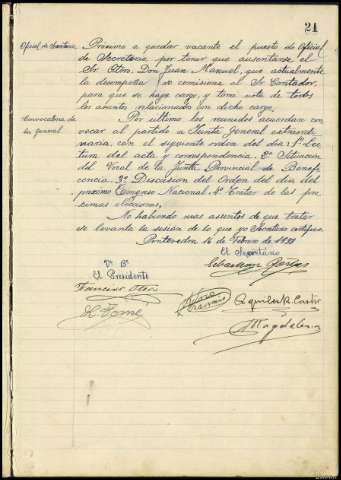 21
Oficial de Secretaria
Proximo a quedar vacante el puesto de Oficial
de Secretaria por tener que ausentarse el
Sr. Otero, Don Juan Manuel, que actualmente
la desempeña se comisiona al Sr. Contador,
para que se haga cargo, y tome nota de todos
los asuntos relacionados con dicho cargo.
Convocatoria de
la general
Por ultimo los reunidos acuerdan con
vocar al partido a Junta General extraordi
naria con el siguiente orden del dia: 1º Lec
tura del acta y correspondencia. 2º Situacion
del Vocal de la Junta Provincial de Benefi
cencia 3º Discusion del Orden del dia del
proximo Congreso Nacional 4º Tratar de las pro
ximas elecciones.
No habiendo mas asuntos de que tratar
se levanta la sesion de lo que yo Secretario certifico.
Pontevedra 16 de Febrero de
El Secretario
Vº Bº
Sebastian
El Presidente
Francisco Otero